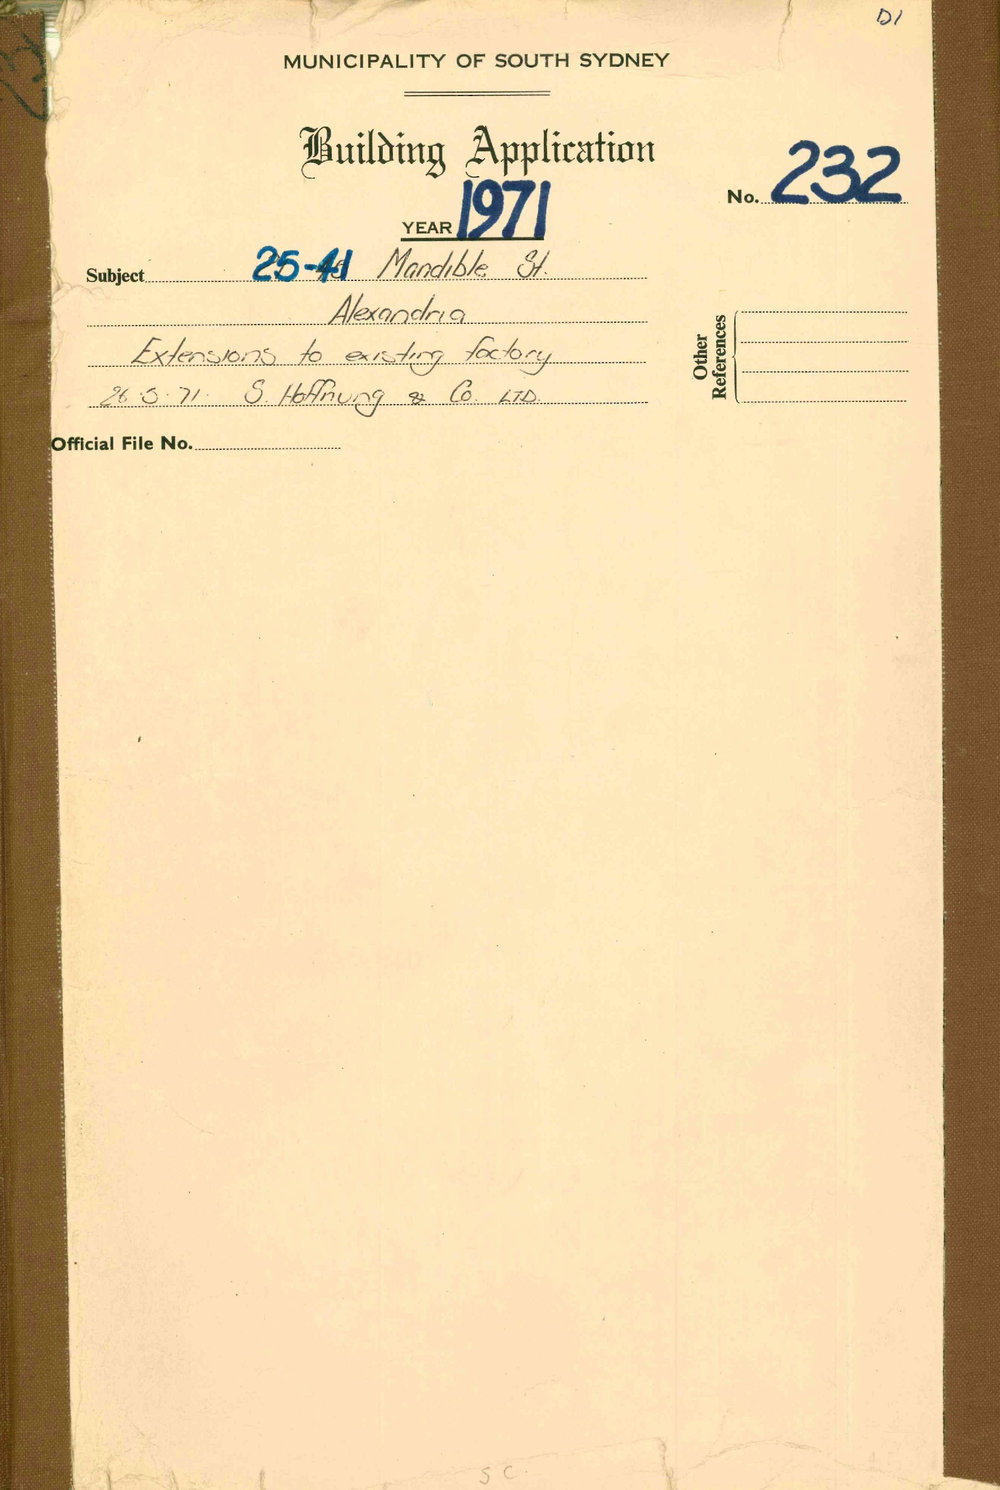 D1
MUNICIPALITY OF SOUTH SYDNEY
Building Application
No. 232
YEAR 1971
Subject 25-41 Mandible St.
Alexandria
Extensions to existing factory
26.5.71. S. Hoffnung & Co. LTD.
Other References
Official File No.
S C